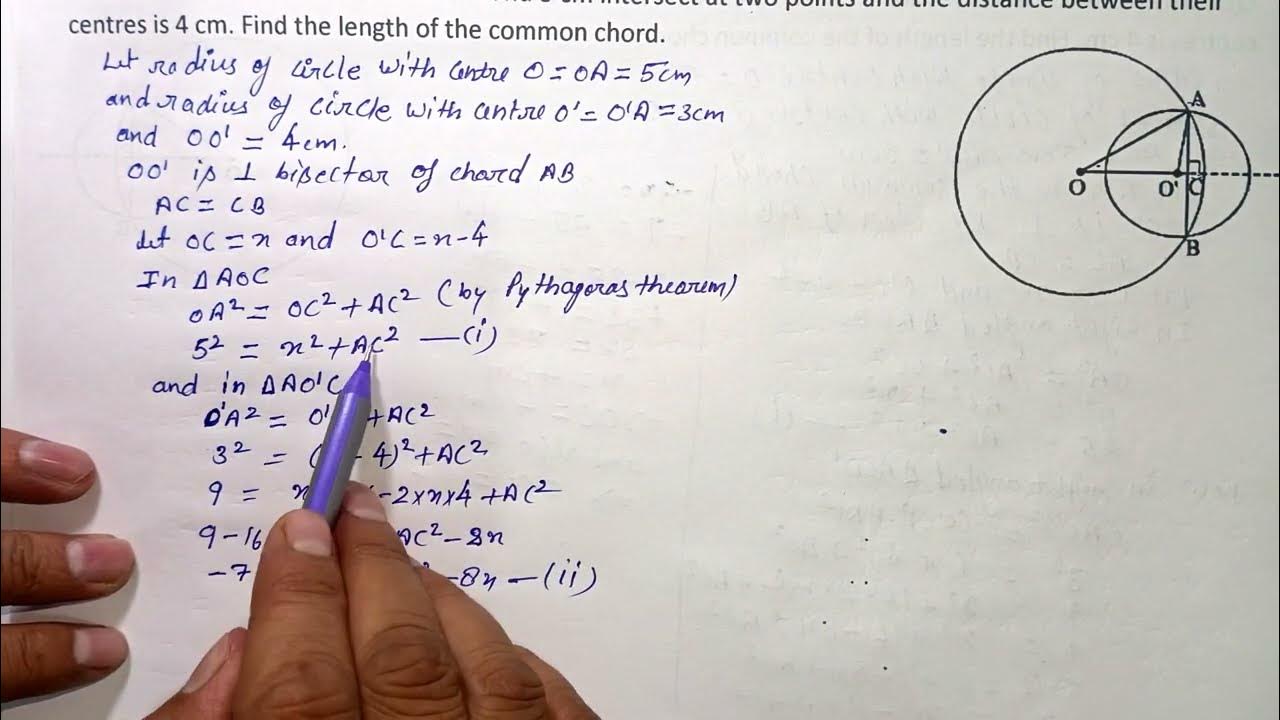 cm intersect at two points and the distance between their
centres is 4 cm. Find the length of the common chord.
Let radius of circle with centre O = OA = 5cm
and radius of circle with centre O' = O'A = 3cm
and OO' = 4cm.
OO' is ⊥ bisector of chord AB
AC = CB
Let OC = x and O'C = x-4
In △AOC
OA² = OC² + AC² (by Pythagoras theorem)
5² = x² + AC² —(i)
and in △AO'C
O'A² = O' + AC²
3² = ( 4)² + AC²
9 = x - 2×x×4 + AC²
9 - 16 AC² - 8x
-7 - 8x — (ii)
A
O
O'
C
B